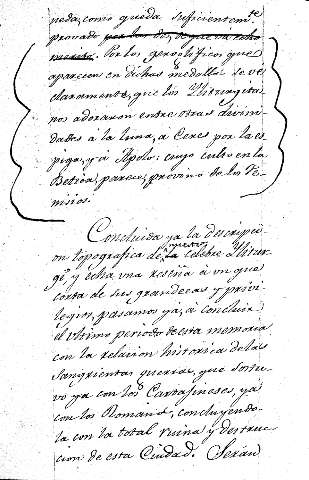 neda, como queda suficientemte
provado por los dos, de que va echo
merito. Por los geroglificos que
aparecen en dichas medallas se ve
claramente, que los Yliturgita
nos adoraron entre otras divini
dades a la luna, a Ceres por la es
piga, y a Apolo; cuyo culto en la
Betica, parece, provino de los Fe
nisios.
Concluida ya la descripci
on topografica de nuestra la celebre Ylitur
gi, y echa una reseña a un que
corta de sus grandezas y privi
legios, pasamos ya, a concluir
el ultimo periodo de esta memoria
con la relacion historica de las
sangrientas guerras, que sostu
vo ya con los Cartajineses, ya
con los Romanos, concluyendo
la con la total ruina y destruc
cion de esta Ciudad. Serán